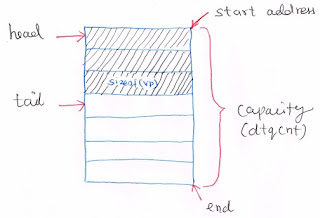 head
start address
sizeof(VP)
tail
capacity
(dtqcnt)
end